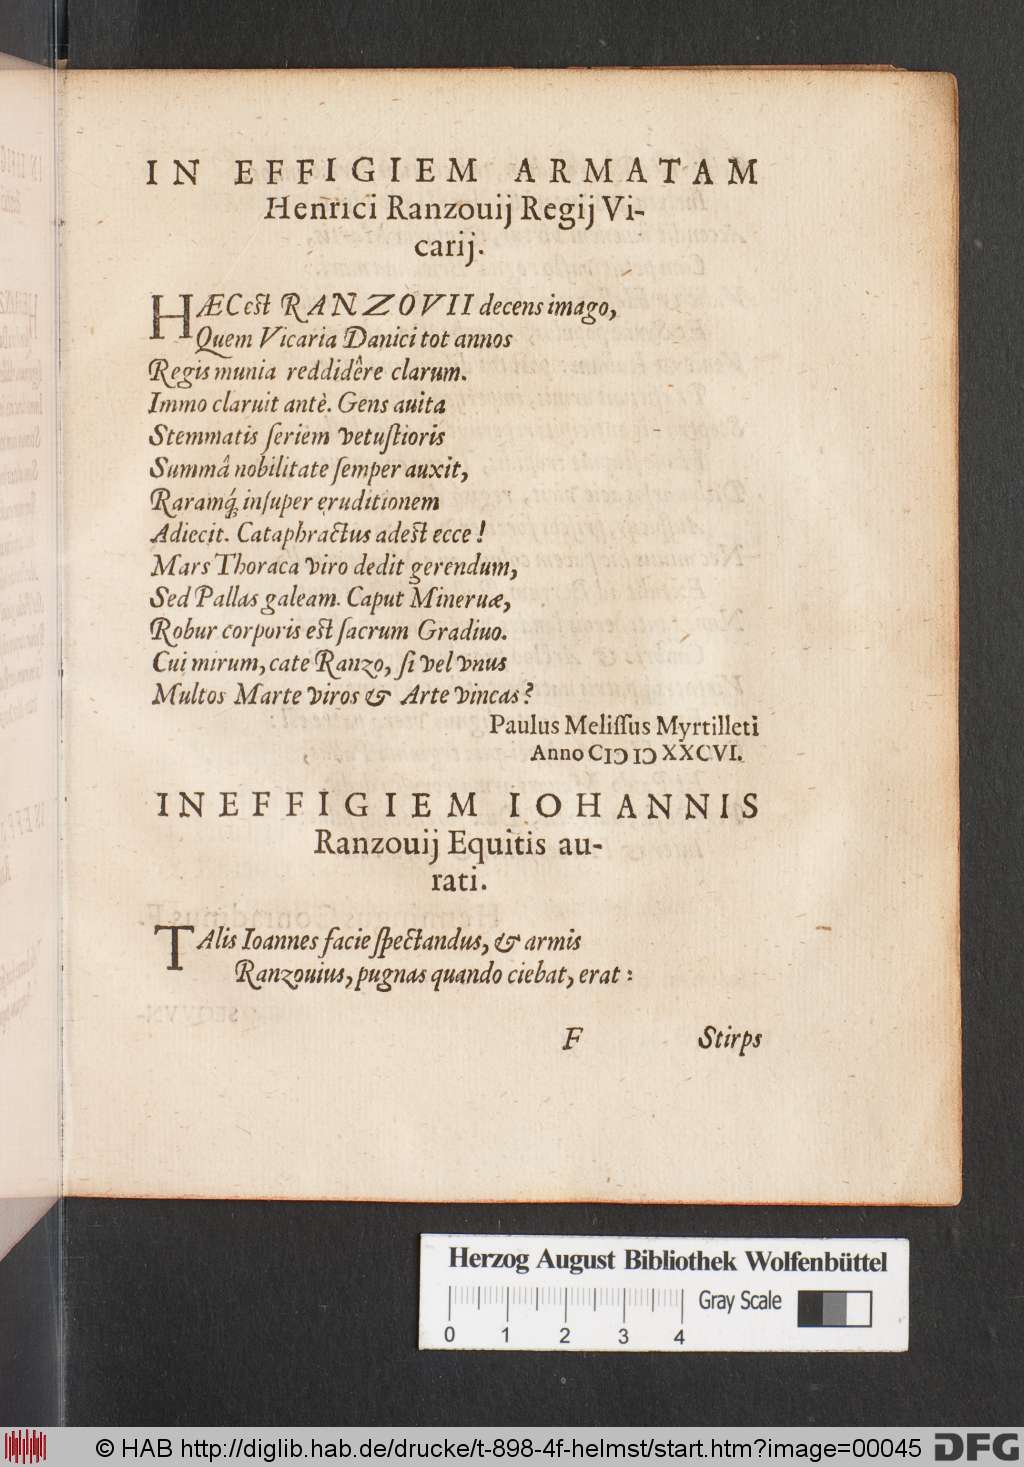 IN EFFIGIEM ARMATAM
Henrici Ranzouij Regij Vi-
carij.
HÆC est RANZOVII decens imago,
Quem Vicaria Danici tot annos
Regis munia reddidêre clarum.
Immo claruit antè. Gens auita
Stemmatis ſeriem vetuſtioris
Summâ nobilitate ſemper auxit,
Raramq́; inſuper eruditionem
Adiecit. Cataphractus adest ecce!
Mars Thoraca viro dedit gerendum,
Sed Pallas galeam. Caput Mineruæ,
Robur corporis est ſacrum Gradiuo.
Cui mirum, cate Ranzo, ſi vel vnus
Multos Marte viros & Arte vincas?
Paulus Meliſſus Myrtilleti
Anno CIↃ IↃ XXCVI.
IN EFFIGIEM IOHANNIS
Ranzouij Equitis au-
rati.
TAlis Ioannes facie ſpectandus, & armis
Ranzouius, pugnas quando ciebat, erat:
F Stirps
Herzog August Bibliothek Wolfenbüttel
Gray Scale
0 1 2 3 4
© HAB http://diglib.hab.de/drucke/t-898-4f-helmst/start.htm?image=00045 DFG